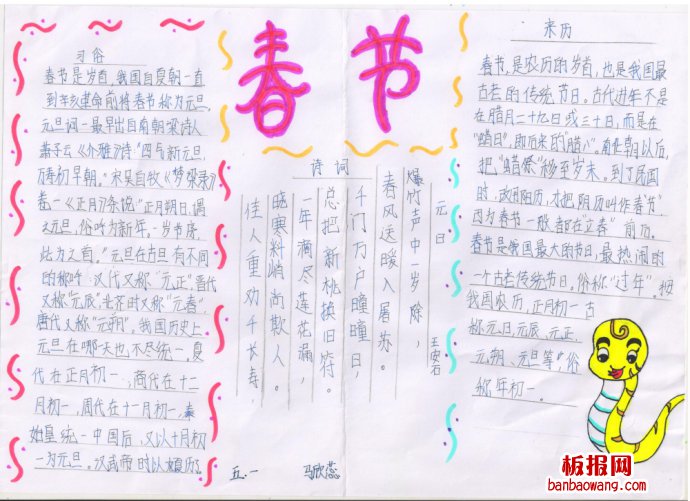 春节
习俗
春节是岁首,我国自夏朝一直
到辛亥革命前将春节称为元旦。
元旦词一最早出自南朝梁诗人
萧子云《介雅》诗"四气新元旦,
万寿初早朝。"宋吴自牧《梦粱录》
卷一《正月》条说"正月朔日,谓
之元旦,俗呼为新年。一岁节序,
此为之首。"元旦在古旦有不同
的称呼、汉代又称"元正",晋代
又称"元辰",北齐时又称"元春",
唐代又称"元朔"。我国历史上
元旦在哪天也不尽统一,夏
代在正月初一,商代在十二
月初一,周代在十一月初一,秦
始皇统一中国后,又以十月初
一为元旦。汉武帝时以
诗词
元日 王安石
爆竹声中一岁除,
春风送暖入屠苏。
千门万户曈曈日
总把新桃换旧符。
一年滴尽莲花漏,
晓寒料峭尚欺人。
佳人重劝千长寿,
五.一 马欣蕊
来历
春节,是农历的岁首,也是我国最
古老的传统节日。古代过年不是
在腊月二十九日或三十日,而是在
"蜡日",即后来的"腊八"。南北朝以后,
把"蜡祭"移至岁末。到了民国
时,改用阳历,才把阴历叫作春节",
因为春节一般都在"立春"前历。
春节是我国最大的节日,最热闹的
一个古老传统节日。俗称"过年"。按
我国农历,正月初一古
称元日、元辰、元正、
元朔、元旦等,俗
称年初一。
板报网
banbaowang.com